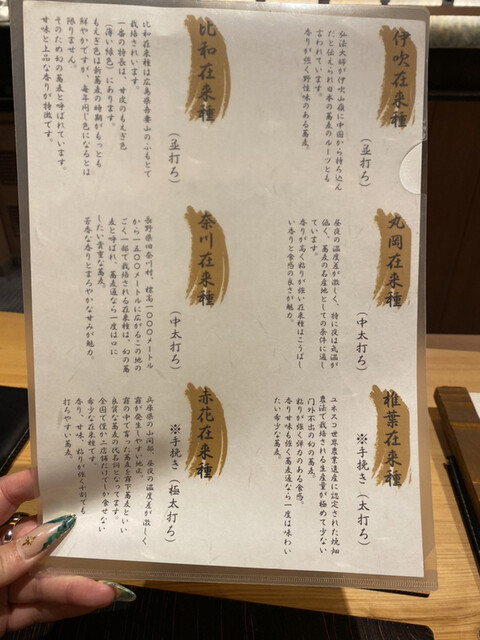 伊吹在来種
（並打ろ）
弘法大師が伊吹山嶺に中国から持ち込ん
だと伝えられ日本の蕎麦のルーツとも
言われています。
香りが強く野性味のある蕎麦。
丸岡在来種
（中太打ろ）
昼夜の温度差が激しく、特に夜は気温が
低く、蕎麦の名産地としての条件に適し
ています。
香りが高く粘りが強い在来種はこうばし
い香りと食感の良さが魅力。
椎葉在来種
※手挽き（太打ろ）
ユネスコ世界農業遺産に認定された焼畑
農法で栽培される生産量が極めて少ない
門外不出の幻の蕎麦。
粘りが強く弾力のある食感。
香り甘味も強く蕎麦通なら一度は味わい
たい希少な蕎麦。
比和在来種
（並打ろ）
比和在来種は広島県吾妻山のふもとで
栽培されています。
一番の特長は、甘皮のもえぎ色
（薄い緑色）にあります。
もえぎ色は新蕎麦の時期がもっとも
鮮やかですが、毎年同じ色になるとは
限りません。
そのため幻の蕎麦と呼ばれています。
甘味と上品な香りが特徴です。
奈川在来種
（中太打ろ）
長野県旧奈川村、標高１０００メートル
から一五〇〇メートルに広がるこの地の
ごく一部で栽培される在来種は、幻の蕎
麦と呼ばれ、蕎麦通なら一度は口に
したい貴重な蕎麦。
芳香な香りとまろやかな甘みが魅力。
赤花在来種
※手挽き（極太打ろ）
兵庫県の山間部、昼夜の温度差が激しく
霧が発生しやすい地域。
霧の中で育った蕎麦を霧下蕎麦といい
良質な蕎麦の代名詞となってます。
全国で僅か三店舗だけでしか食せない
希少な在来種です。
香り、甘味、粘りが強く十割でも
打ちやすい蕎麦。